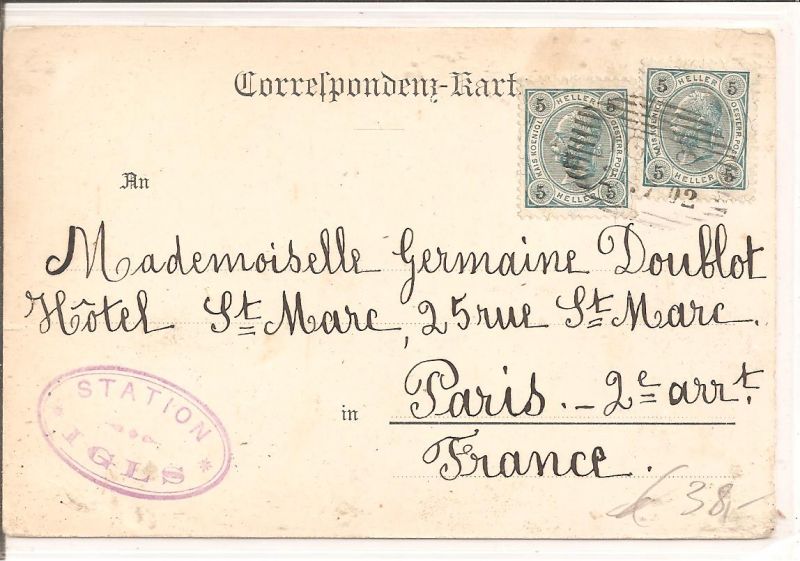 Correspondenz-Kart
5 HELLER 5
KAIS. KOENIGL. OESTERR. POST
5 HELLER 5
5 HELLER 5
KAIS. KOENIGL. OESTERR. POST
5 HELLER 5
02
An
Mademoiselle Germaine Doublot
Hôtel St Marc, 25 rue St Marc.
Paris. - 2e arrt.
in
France.
STATION
IGLS
38,-